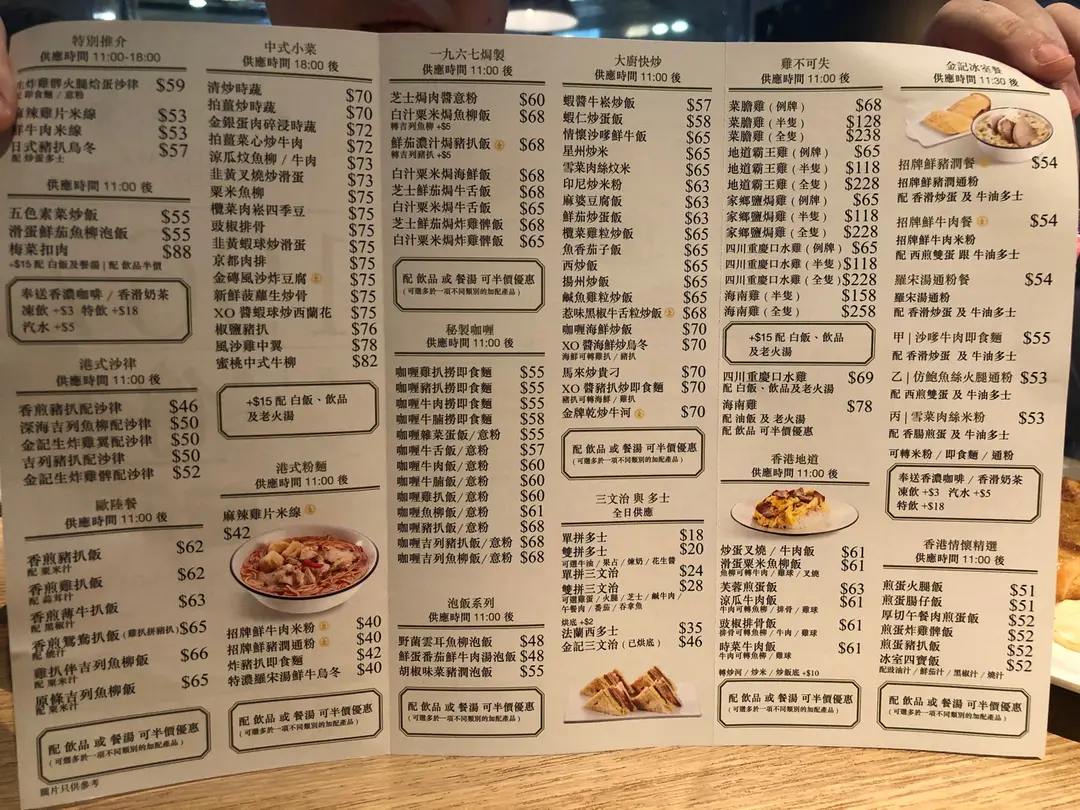 特別推介
供應時間 11:00-18:00
生炸雞髀火腿烚蛋沙律 $59
即食麵 / 意粉
麻辣雞片米線 $53
鮮牛肉米線 $53
日式豬扒烏冬 $57
配 炒蛋多士
供應時間 11:00 後
五色素菜炒飯 $55
滑蛋鮮茄魚柳泡飯 $55
梅菜扣肉 $88
+$15 配 白飯及餐湯 | 配 飲品半價
奉送香濃咖啡 / 香滑奶茶
凍飲 +$3 特飲 +$18
汽水 +$5
港式沙律
供應時間 11:00 後
香煎豬扒配沙律 $46
深海吉列魚柳配沙律 $50
金記生炸雞翼配沙律 $50
吉列豬扒配沙律 $50
金記生炸雞髀配沙律 $52
歐陸餐
供應時間 11:00 後
香煎豬扒飯 $62
配 粟米汁
香煎雞扒飯 $62
配 蒜茸汁
香煎薄牛扒飯 $63
配 黑椒汁
香煎鴛鴦扒飯 (雞扒拼豬扒) $65
配 燒汁
雞扒伴吉列魚柳飯 $66
配 粟米汁
原條吉列魚柳飯 $65
配 粟米汁
配 飲品 或 餐湯 可半價優惠
( 可選多於一項不同類別的加配產品 )
圖片只供參考
中式小菜
供應時間 18:00 後
清炒時蔬 $70
拍薑炒時蔬 $70
金銀蛋肉碎浸時蔬 $72
拍薑菜心炒牛肉 $72
涼瓜炆魚柳 / 牛肉 $73
韭黃叉燒炒滑蛋 $73
粟米魚柳 $75
欖菜肉崧四季豆 $75
豉椒排骨 $75
韭黃蝦球炒滑蛋 $75
京都肉排 $75
金磚風沙炸豆腐 $75
新鮮菠蘿生炒骨 $75
XO 醬蝦球炒西蘭花 $75
椒鹽豬扒 $76
風沙雞中翼 $78
蜜桃中式牛柳 $82
+$15 配 白飯、飲品
及老火湯
港式粉麵
供應時間 11:00 後
麻辣雞片米線
$42
招牌鮮牛肉米粉 $40
招牌鮮豬潤通粉 $40
炸豬扒即食麵 $42
特濃羅宋湯鮮牛烏冬 $40
配 飲品 或 餐湯 可半價優惠
( 可選多於一項不同類別的加配產品 )
一九六七焗製
供應時間 11:00 後
芝士焗肉醬意粉 $60
白汁粟米焗魚柳飯 $68
轉吉列魚柳 +$5
鮮茄濃汁焗豬扒飯 $68
轉吉列豬扒 +$5
白汁粟米焗海鮮飯 $68
芝士鮮茄焗牛舌飯 $68
白汁粟米焗牛舌飯 $65
芝士鮮茄焗炸雞髀飯 $68
白汁粟米焗炸雞髀飯 $65
配 飲品 或 餐湯 可半價優惠
( 可選多於一項不同類別的加配產品 )
秘製咖喱
供應時間 11:00 後
咖喱雞扒撈即食麵 $55
咖喱豬扒撈即食麵 $55
咖喱牛肉撈即食麵 $55
咖喱牛腩撈即食麵 $58
咖喱雜菜蛋飯/意粉 $55
咖喱牛舌飯/意粉 $57
咖喱牛肉飯/意粉 $60
咖喱牛腩飯/意粉 $60
咖喱雞扒飯/意粉 $60
咖喱魚柳飯/意粉 $61
咖喱豬扒飯/意粉 $68
咖喱吉列豬扒飯/意粉 $68
咖喱吉列魚柳飯/意粉 $68
泡飯系列
供應時間 11:00 後
野菌雲耳魚柳泡飯 $48
鮮蛋番茄鮮牛肉湯泡飯 $48
胡椒味菜豬潤泡飯 $55
配 飲品 或 餐湯 可半價優惠
( 可選多於一項不同類別的加配產品 )
大廚快炒
供應時間 11:00 後
蝦醬牛崧炒飯 $57
蝦仁炒蛋飯 $58
情懷沙嗲鮮牛飯 $65
星州炒米 $65
雪菜肉絲炆米 $65
印尼炒米粉 $63
麻婆豆腐飯 $63
鮮茄炒蛋飯 $63
欖菜雞粒炒飯 $65
魚香茄子飯 $65
西炒飯 $65
揚州炒飯 $65
鹹魚雞粒炒飯 $65
惹味黑椒牛舌粒炒飯 $68
咖喱海鮮炒飯 $70
XO 醬海鮮炒烏冬 $70
海鮮可轉雞扒 / 豬扒
馬來炒貴刁 $70
XO 醬豬扒炒即食麵 $70
豬扒可轉海鮮 / 雞扒
金牌乾炒牛河 $70
配 飲品 或 餐湯 可半價優惠
( 可選多於一項不同類別的加配產品 )
三文治 與 多士
全日供應
單拼多士 $18
雙拼多士 $20
可選牛油 / 果占 / 煉奶 / 花生醬
單拼三文治 $24
雙拼三文治 $28
可選雞蛋 / 火腿 / 芝士 / 鹹牛肉 /
午餐肉 / 番茄 / 吞拿魚
烘底 +$2
法蘭西多士 $35
金記三文治 (已烘底) $46
雞不可失
供應時間 11:00 後
菜膽雞 ( 例牌 ) $68
菜膽雞 ( 半隻 ) $128
菜膽雞 ( 全隻 ) $238
地道霸王雞 ( 例牌 ) $65
地道霸王雞 ( 半隻 ) $118
地道霸王雞 ( 全隻 ) $228
家鄉鹽焗雞 ( 例牌 ) $65
家鄉鹽焗雞 ( 半隻 ) $118
家鄉鹽焗雞 ( 全隻 ) $228
四川重慶口水雞 ( 例牌 ) $65
四川重慶口水雞 ( 半隻 ) $118
四川重慶口水雞 ( 全隻 ) $228
海南雞 ( 半隻 ) $158
海南雞 ( 全隻 ) $258
+$15 配 白飯、飲品
及老火湯
四川重慶口水雞 $69
配 白飯、飲品及老火湯
海南雞 $78
配 油飯 及 老火湯
配 飲品 可半價優惠
香港地道
供應時間 11:00 後
炒蛋叉燒 / 牛肉飯 $61
滑蛋粟米魚柳飯 $61
魚柳可轉牛肉 / 雞球 / 叉燒
芙蓉煎蛋飯 $63
涼瓜牛肉飯 $61
牛肉可轉魚柳 / 排骨 / 雞球
豉椒排骨飯 $61
排骨可轉魚柳 / 牛肉 / 雞球
時菜牛肉飯 $61
牛肉可轉魚柳 / 雞球
轉炒河 / 炒米 / 炒飯底 +$10
配 飲品 或 餐湯 可半價優惠
( 可選多於一項不同類別的加配產品 )
金記冰室餐
供應時間 11:30 後
招牌鮮豬潤餐 $54
招牌鮮豬潤通粉
配 香滑炒蛋 及 牛油多士
招牌鮮牛肉餐 $54
招牌鮮牛肉米粉
配 西煎雙蛋 跟 牛油多士
羅宋湯通粉餐 $54
羅宋湯通粉
配 香滑炒蛋 及 牛油多士
甲 | 沙嗲牛肉即食麵 $55
配 香滑炒蛋 及 牛油多士
乙 | 仿鮑魚絲火腿通粉 $53
配 西煎雙蛋 及 牛油多士
丙 | 雪菜肉絲米粉 $53
配 香腸煎蛋 及 牛油多士
可轉米粉 / 即食麵 / 通粉
奉送香濃咖啡 / 香滑奶茶
凍飲 +$3 汽水 +$5
特飲 +$18
香港情懷精選
供應時間 11:00 後
煎蛋火腿飯 $51
煎蛋腸仔飯 $51
厚切午餐肉煎蛋飯 $52
煎蛋炸雞髀飯 $52
煎蛋豬扒飯 $52
冰室四寶飯 $52
配豉油汁 / 鮮茄汁 / 黑椒汁 / 燒汁
配 飲品 或 餐湯 可半價優惠
( 可選多於一項不同類別的加配產品 )